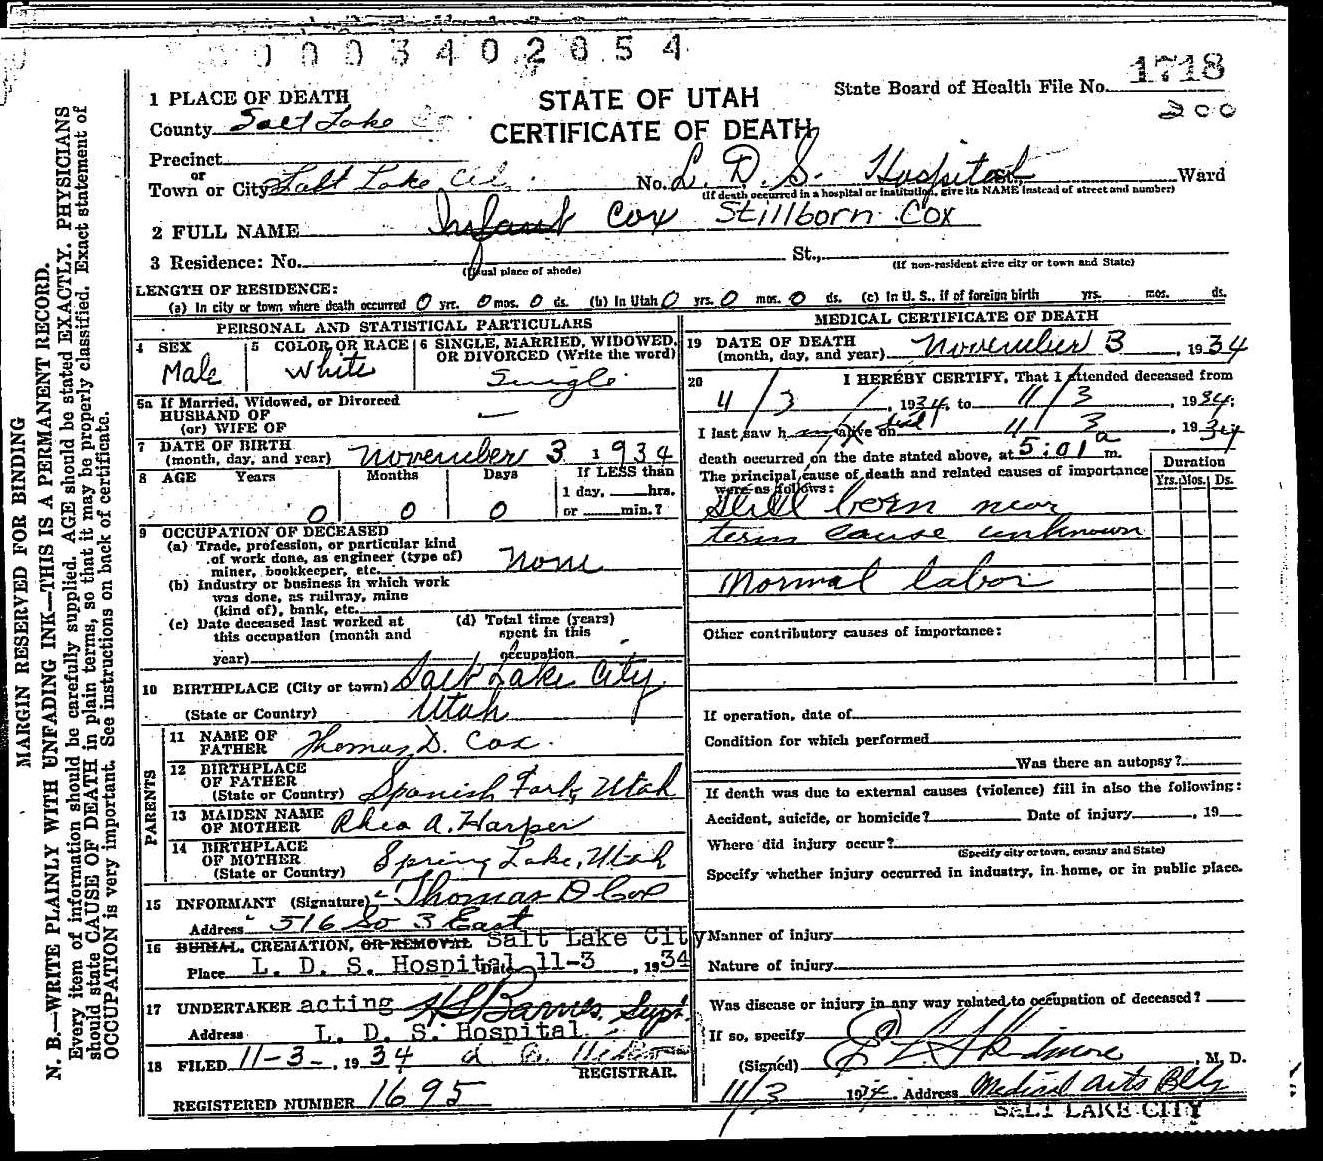 0003402654
1718
State Board of Health File No.
200
1 PLACE OF DEATH
STATE OF UTAH
County Salt Lake Co.
CERTIFICATE OF DEATH
Precinct
or
Town or City Salt Lake No. L. D. S. Hospital St., Ward
(If death occurred in a hospital or institution, give its NAME instead of street and number)
2 FULL NAME Infant Cox Stillborn Cox
3 Residence: No. St.,
(Usual place of abode) (If non-resident give city or town and State)
LENGTH OF RESIDENCE:
(a) In city or town where death occurred 0 yrs. 0 mos. 0 ds. (b) In Utah 0 yrs. 0 mos. 0 ds. (c) In U. S., if of foreign birth yrs. mos. ds.
PERSONAL AND STATISTICAL PARTICULARS
4 SEX
Male
5 COLOR OR RACE
White
6 SINGLE, MARRIED, WIDOWED,
OR DIVORCED (Write the word)
Single
5a If Married, Widowed, or Divorced
HUSBAND OF
(or) WIFE OF —
7 DATE OF BIRTH
(month, day, and year) November 3 1934
8 AGE Years Months Days If LESS than
1 day, hrs.
0 0 0 or min.?
9 OCCUPATION OF DECEASED
(a) Trade, profession, or particular kind
of work done, as engineer (type of)
miner, bookkeeper, etc. None
(b) Industry or business in which work
was done, as railway, mine
(kind of), bank, etc.
(c) Date deceased last worked at
this occupation (month and
year)
(d) Total time (years)
spent in this
occupation
10 BIRTHPLACE (City or town) Salt Lake City
(State or Country) Utah
PARENTS
11 NAME OF
FATHER Thomas D. Cox.
12 BIRTHPLACE
OF FATHER
(State or Country) Spanish Fork, Utah
13 MAIDEN NAME
OF MOTHER Rhea A. Harper
14 BIRTHPLACE
OF MOTHER
(State or Country) Spring Lake, Utah
15 INFORMANT (Signature) Thomas D Cox
Address 516 So 3 East
16 BURIAL, CREMATION, OR REMOVAL Salt Lake City
Place L. D. S. Hospital Date 11-3, 1934
17 UNDERTAKER acting H S Barnes, Supt.
Address L. D. S. Hospital
18 FILED 11-3-, 1934
REGISTRAR.
REGISTERED NUMBER 1695
MEDICAL CERTIFICATE OF DEATH
19 DATE OF DEATH
(month, day, and year) November 3, 1934
20 I HEREBY CERTIFY, That I attended deceased from
11/3, 1934, to 11/3, 1934;
I last saw h alive on 11 3, 1934
death occurred on the date stated above, at 5:01 a m.
The principal cause of death and related causes of importance
were as follows:
Duration
Yrs. Mos. Ds.
Still born near
term cause unknown
Normal labor
Other contributory causes of importance:
If operation, date of
Condition for which performed
Was there an autopsy?
If death was due to external causes (violence) fill in also the following:
Accident, suicide, or homicide? Date of injury , 19
Where did injury occur?
(Specify city or town, county and State)
Specify whether injury occurred in industry, in home, or in public place.
Manner of injury
Nature of injury
Was disease or injury in any way related to occupation of deceased?
If so, specify
(Signed) E L Skidmore, M. D.
11/3 1934. Address Medical Arts Bldg
SALT LAKE CITY
MARGIN RESERVED FOR BINDING
N. B.—WRITE PLAINLY WITH UNFADING INK—THIS IS A PERMANENT RECORD.
Every item of information should be carefully supplied. AGE should be stated EXACTLY. PHYSICIANS
should state CAUSE OF DEATH in plain terms, so that it may be properly classified. Exact statement of
OCCUPATION is very important. See instructions on back of certificate.